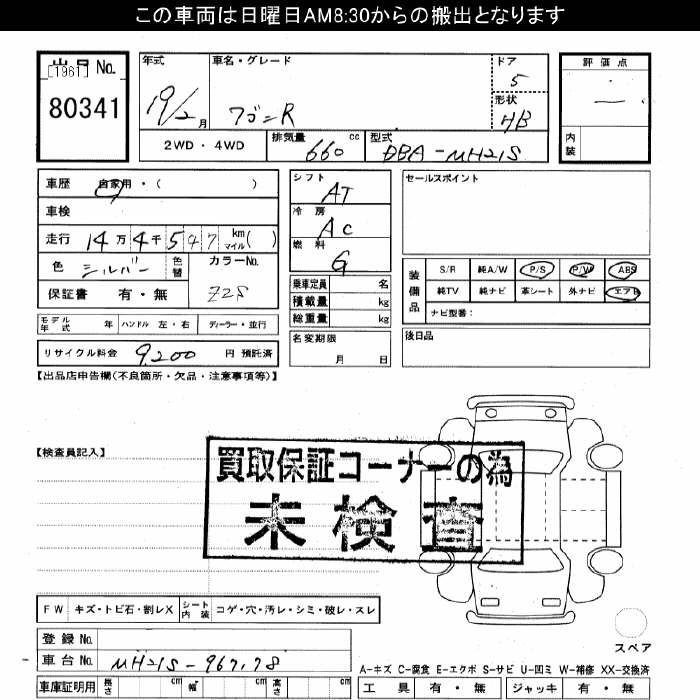 この車両は日曜日AM8:30からの搬出となります
出品No.
[1961]
80341
年式
19/2月
車名・グレード
ワゴンR
ドア
5
形状
HB
評価点
内装
2WD・4WD
排気量
660 cc
型式
DBA-MH21S
車歴 自家用・( )
車検
走行 14万4千547km マイル( )
色 シルバー 色替 カラーNo. Z2S
保証書 有・無
モデル年式 年 ハンドル 左・右 ディーラー・並行
リサイクル料金 9,200 円 預託済
シフト
AT
冷房
AC
燃料
G
乗車定員 名
積載量 kg
総重量 kg
名変期限
月 日
セールスポイント
装備品
S/R 純A/W P/S P/W ABS
純TV 純ナビ 革シート 外ナビ エアB
ナビ型番:
後日品
【出品店申告欄(不良箇所・欠品・注意事項等)】
【検査員記入】
買取保証コーナーの為
未検査
FW キズ・トビ石・割レX シート内装 コゲ・穴・汚レ・シミ・破レ・スレ
登録No.
車台No. MH21S-967178
車庫証明用 長さ cm 幅 cm 高さ cm
スペア
A-キズ C-腐食 E-エクボ S-サビ U-凹ミ W-補修 XX-交換済
工具 有・無 ジャッキ 有・無